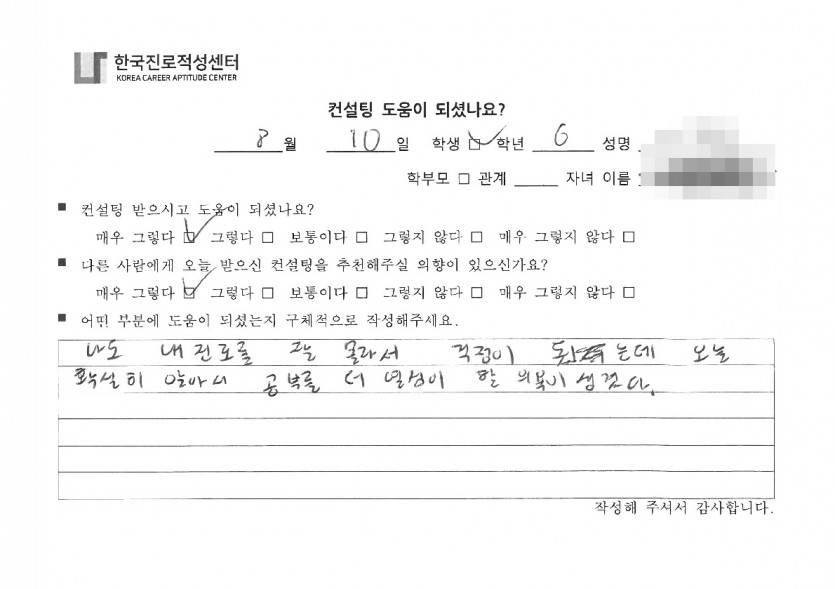 한국진로적성센터
KOREA CAREER APTITUDE CENTER
컨설팅 도움이 되셨나요?
8월 10일 학생 ☑ 학년 6 성명
학부모 □ 관계 ____ 자녀 이름
■ 컨설팅 받으시고 도움이 되셨나요?
매우 그렇다 ☑ 그렇다 □ 보통이다 □ 그렇지 않다 □ 매우 그렇지 않다 □
■ 다른 사람에게 오늘 받으신 컨설팅을 추천해주실 의향이 있으신가요?
매우 그렇다 ☑ 그렇다 □ 보통이다 □ 그렇지 않다 □ 매우 그렇지 않다 □
■ 어떤 부분에 도움이 되셨는지 구체적으로 작성해주세요.
나도 내 진로를 몰라서 걱정이 는데 오늘
확실히 알아서 공부를 더 열심이 할 의욕이 생겼다.
작성해 주셔서 감사합니다.